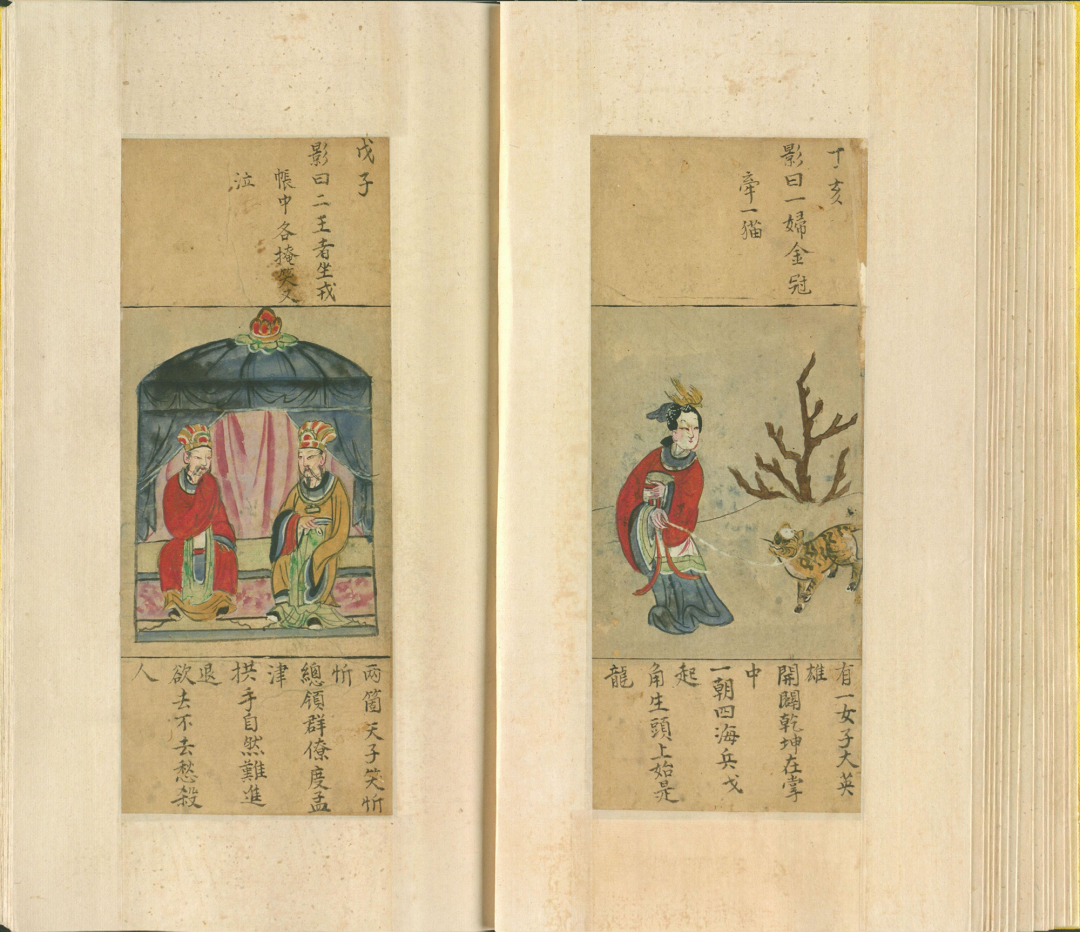 丁亥
影曰一婦金冠
牽一猫
有一女子大英
雄
開闢乾坤在掌
中
一朝四海兵戈
起
角生頭上始是
龍
戊子
影曰二王者坐戎
帳中各掩笑又
泣
兩箇天子笑忻
忻
總領群僚度孟
津
拱手自然難進
退
欲去不去愁殺
人